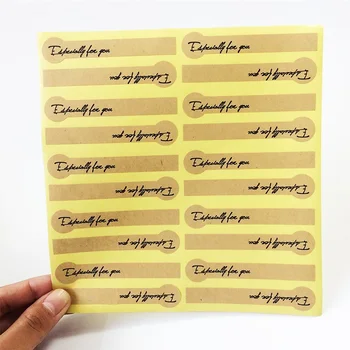 Especially for you
Especially for you
Especially for you
Especially for you
Especially for you
Especially for you
Especially for you
Especially for you
Especially for you
Especially for you
Especially for you
Especially for you
Especially for you
Especially for you
Especially for you
Especially for you
Especially for you
Especially for you
Especially for you
Especially for you